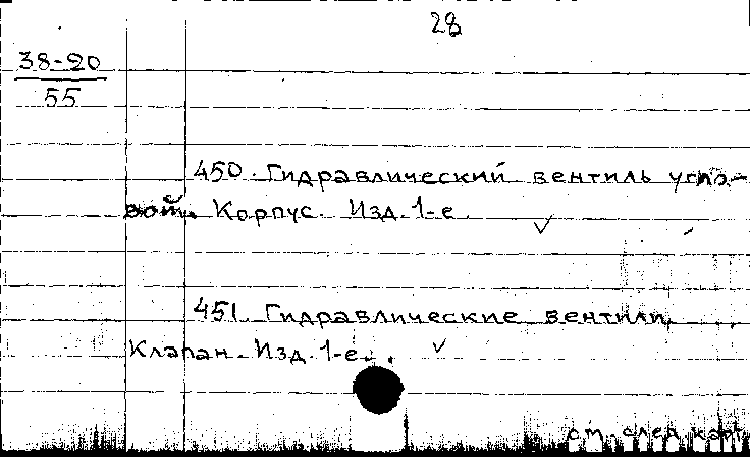 28
38-20
55
450. Гидравлический вентиль угло-
вой. Корпус. Изд. 1-е
451. Гидравлические вентили.
Клапан. Изд. 1-е.
см. след. карт.